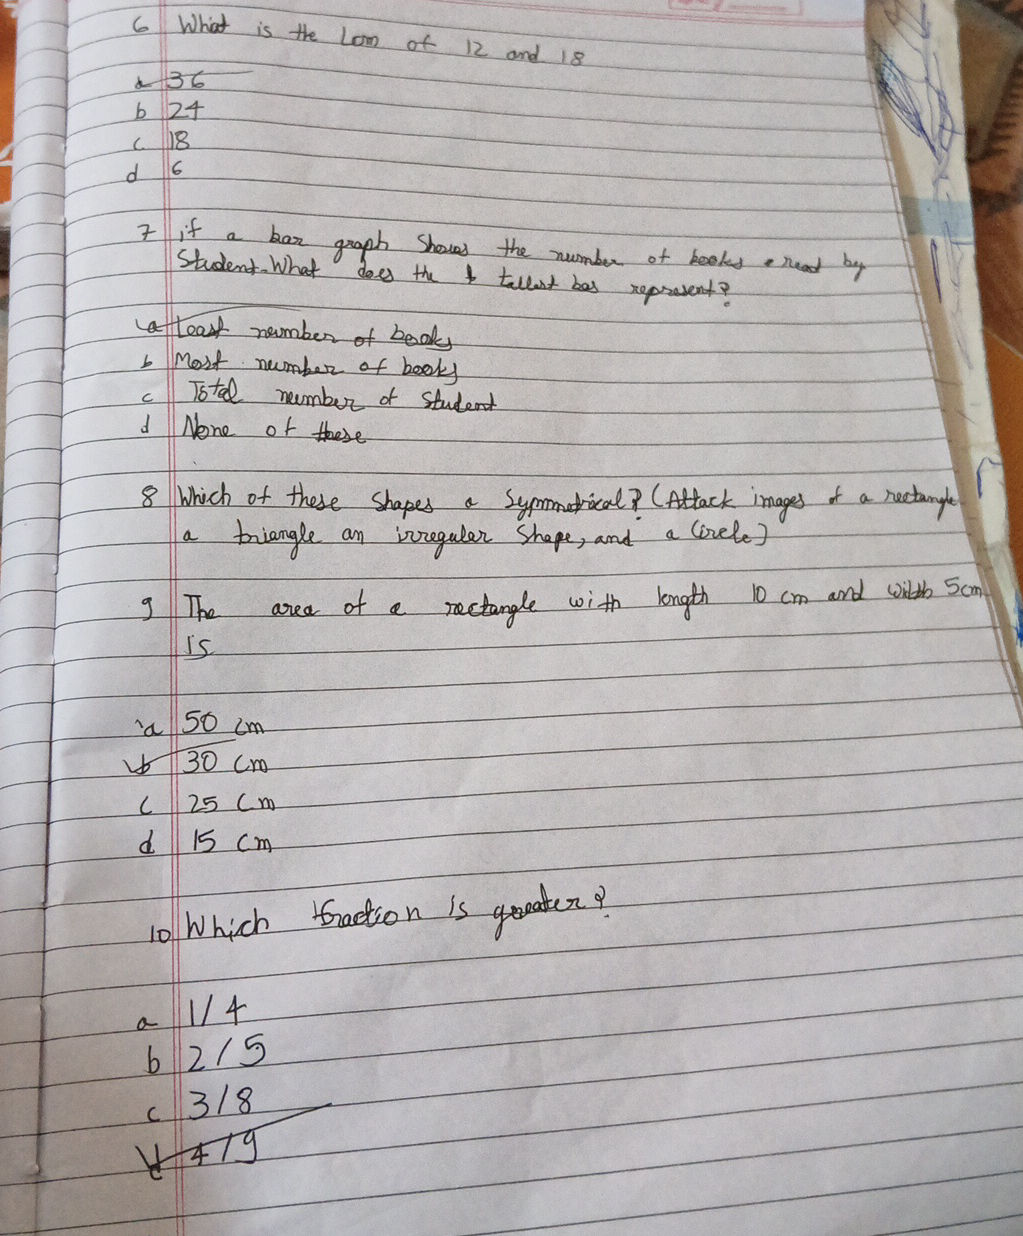 6 What is the Lcm of 12 and 18
a 36
b 24
c 18
d 6
7 if a bar graph Shows the number of books read by
Student. What does the tallest bar represent?
a Least number of books
b Most number of books
c Total number of Student
d None of these
8 Which of these Shapes a Symmetrical? (Attack images of a rectangle
a triangle an irregular Shape, and a Circle)
9 The area of a rectangle with length 10 cm and width 5cm
is
a 50 cm
b 30 cm
c 25 cm
d 15 cm
10 Which fraction is greater?
a 1/4
b 2/5
c 3/8
d 4/9